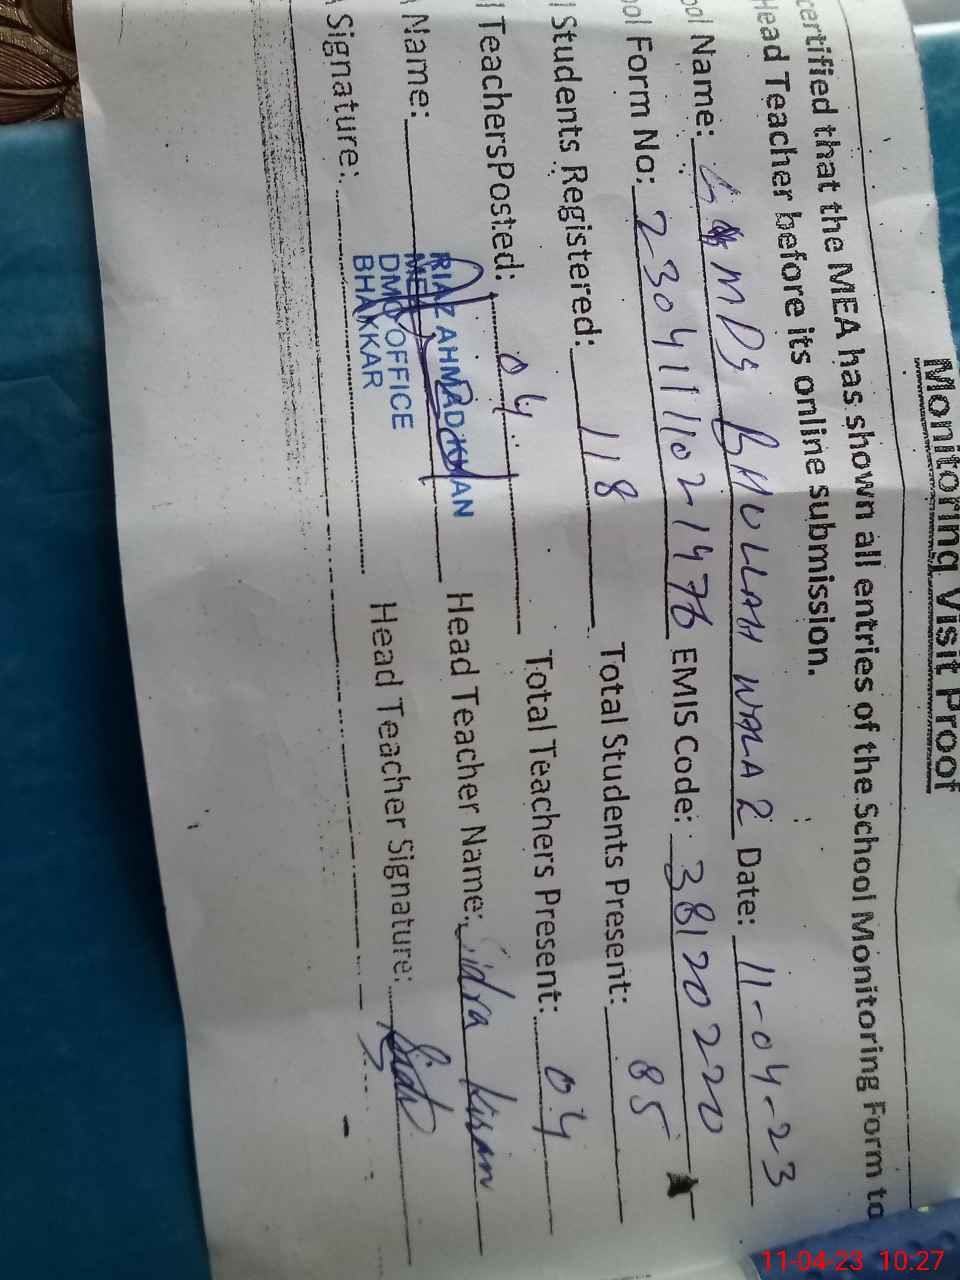 Monitoring Visit Proof
certified that the MEA has shown all entries of the School Monitoring Form to
Head Teacher before its online submission.
ool Name: GMMDS BHULLAH WALA 2 Date: 11-04-23
ool Form No: 2304111021476 EMIS Code: 38120220
l Students Registered: 118 Total Students Present: 85
l TeachersPosted: 04 Total Teachers Present: 04
Name: Head Teacher Name: Sidra kiran
RIAZ AHMAD KHAN
MEA
DMO OFFICE
BHAKKAR
Signature: Head Teacher Signature: Sidra
11-04-23 10:27